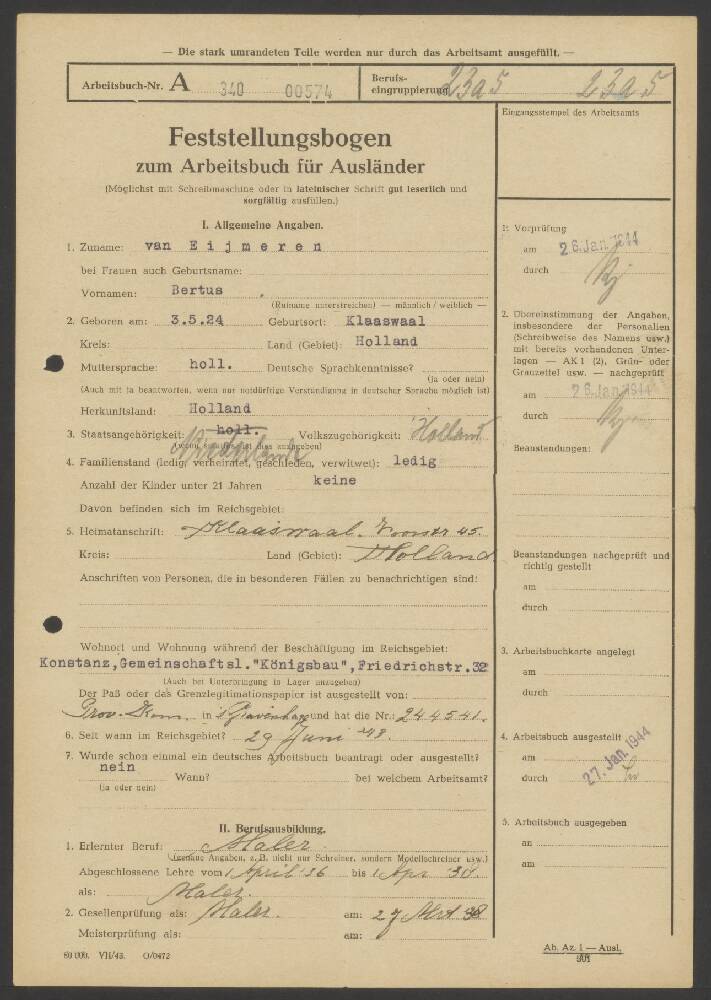 — Die stark umrandeten Teile werden nur durch das Arbeitsamt ausgefüllt. —
Arbeitsbuch-Nr. A 340 00574
Berufs-
eingruppierung 23a5 23a5
Eingangsstempel des Arbeitsamts
Feststellungsbogen
zum Arbeitsbuch für Ausländer
(Möglichst mit Schreibmaschine oder in lateinischer Schrift gut leserlich und
sorgfältig ausfüllen.)
I. Allgemeine Angaben.
1. Zuname: van Eijmeren
bei Frauen auch Geburtsname:
Vornamen: Bertus
(Rufname unterstreichen) — männlich / weiblich —
2. Geboren am: 3.5.24 Geburtsort: Klaaswaal
Kreis: Land (Gebiet): Holland
Muttersprache: holl. Deutsche Sprachkenntnisse?
(ja oder nein)
(Auch mit ja beantworten, wenn nur notdürftige Verständigung in deutscher Sprache möglich ist)
Herkunftsland: Holland
3. Staatsangehörigkeit: holl. Volkszugehörigkeit: Holland
Niederlande
4. Familienstand (ledig, verheiratet, geschieden, verwitwet): ledig
Anzahl der Kinder unter 21 Jahren keine
Davon befinden sich im Reichsgebiet:
5. Heimatanschrift: Klaaswaal. 45.
Kreis: Land (Gebiet): Holland
Anschriften von Personen, die in besonderen Fällen zu benachrichtigen sind:
Wohnort und Wohnung während der Beschäftigung im Reichsgebiet:
Konstanz, Gemeinschaftsl. "Königsbau", Friedrichstr. 32
(Auch bei Unterbringung in Lager anzugeben)
Der Paß oder das Grenzlegitimationspapier ist ausgestellt von:
Prov. in s'Gravenhage und hat die Nr.: 244541.
6. Seit wann im Reichsgebiet? 29 Juni
7. Wurde schon einmal ein deutsches Arbeitsbuch beantragt oder ausgestellt?
nein Wann? bei welchem Arbeitsamt?
(ja oder nein)
II. Berufsausbildung.
1. Erlernter Beruf: Maler
(genaue Angaben, z. B. nicht nur Schreiner, sondern Modellschreiner usw.)
Abgeschlossene Lehre vom 1 April '36 bis 1 Apr 38.
als: Maler.
2. Gesellenprüfung als: Maler. am: 27 38
Meisterprüfung als: am:
80 000. VII/43. O/0472
1. Vorprüfung
am 26. Jan. 1944
durch
2. Übereinstimmung der Angaben,
insbesondere der Personalien
(Schreibweise des Namens usw.)
mit bereits vorhandenen Unter-
lagen — AK 1 (2), Grün- oder
Grauzettel usw. — nachgeprüft
am 26. Jan. 1944
durch
Beanstandungen:
Beanstandungen nachgeprüft und
richtig gestellt
am
durch
3. Arbeitsbuchkarte angelegt
am
durch
4. Arbeitsbuch ausgestellt
am 27. Jan. 1944
durch
5. Arbeitsbuch ausgegeben
an
am
Ab. Az. 1 — Ausl.